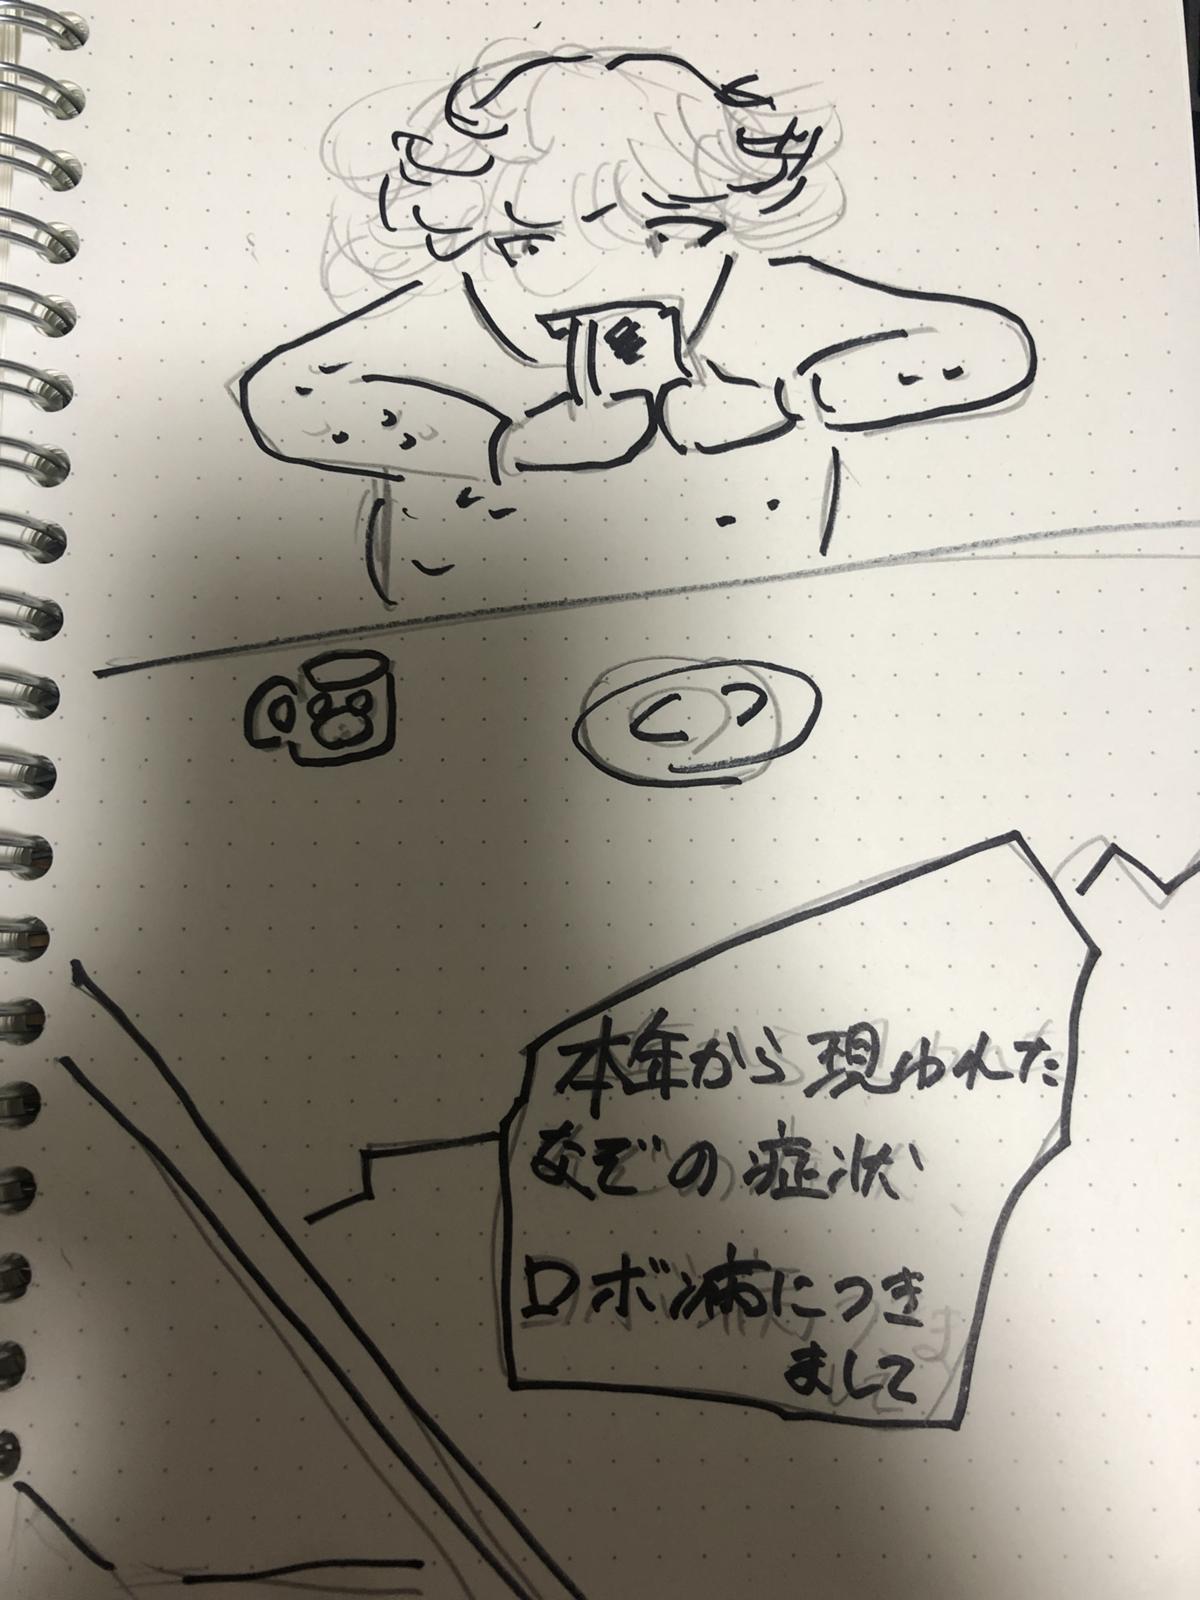 本年から現われた
なぞの症状
ロボ病につき
まして